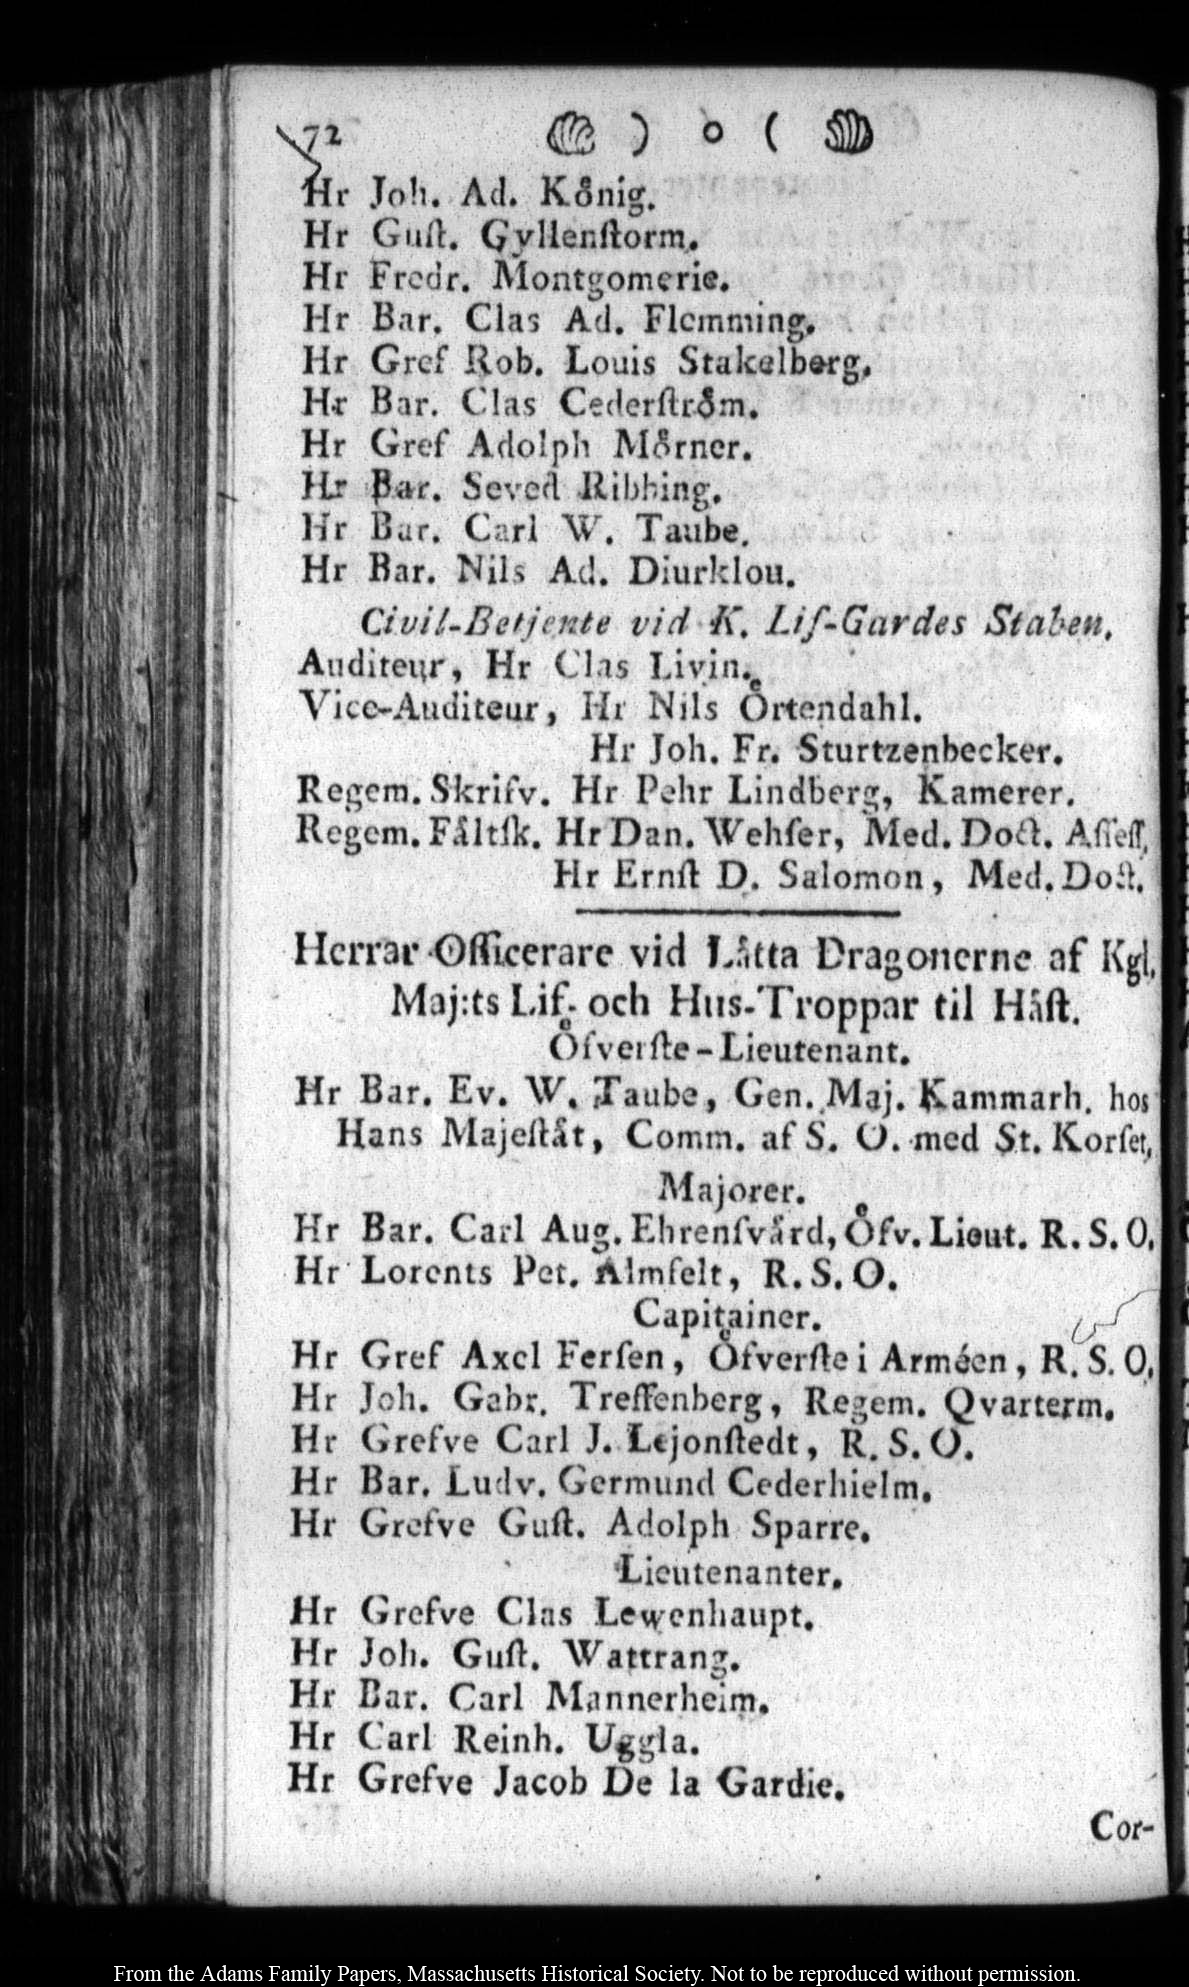 72 ) o (
Hr Joh. Ad. König.
Hr Guſt. Gyllenſtorm.
Hr Fredr. Montgomerie.
Hr Bar. Clas Ad. Flemming.
Hr Gref Rob. Louis Stakelberg.
Hr Bar. Clas Cederſtröm.
Hr Gref Adolph Mörner.
Hr Bar. Seved Ribbing.
Hr Bar. Carl W. Taube.
Hr Bar. Nils Ad. Diurklou.
Civil-Betjente vid K. Lif-Gardes Staben.
Auditeur, Hr Clas Livin.
Vice-Auditeur, Hr Nils Örtendahl.
Hr Joh. Fr. Sturtzenbecker.
Regem. Skrifv. Hr Pehr Lindberg, Kamerer.
Regem. Fältſk. Hr Dan. Wehſer, Med. Doct. Aſſeſſ.
Hr Ernſt D. Salomon, Med. Doct.
Herrar Officerare vid Lätta Dragonerne af Kgl.
Maj:ts Lif- och Hus-Troppar til Häſt.
Öfverſte-Lieutenant.
Hr Bar. Ev. W. Taube, Gen. Maj. Kammarh. hos
Hans Majeſtät, Comm. af S. O. med St. Korſet,
Majorer.
Hr Bar. Carl Aug. Ehrenſvärd, Öfv. Lieut. R. S. O.
Hr Lorents Pet. Almfelt, R. S. O.
Capitainer.
Hr Gref Axel Ferſen, Öfverſte i Arméen, R. S. O.
Hr Joh. Gabr. Treffenberg, Regem. Qvarterm.
Hr Grefve Carl J. Lejonſtedt, R. S. O.
Hr Bar. Ludv. Germund Cederhielm.
Hr Grefve Guſt. Adolph Sparre.
Lieutenanter.
Hr Grefve Clas Lewenhaupt.
Hr Joh. Guſt. Wattrang.
Hr Bar. Carl Mannerheim.
Hr Carl Reinh. Uggla.
Hr Grefve Jacob De la Gardie.
Cor-
From the Adams Family Papers, Massachusetts Historical Society. Not to be reproduced without permission.